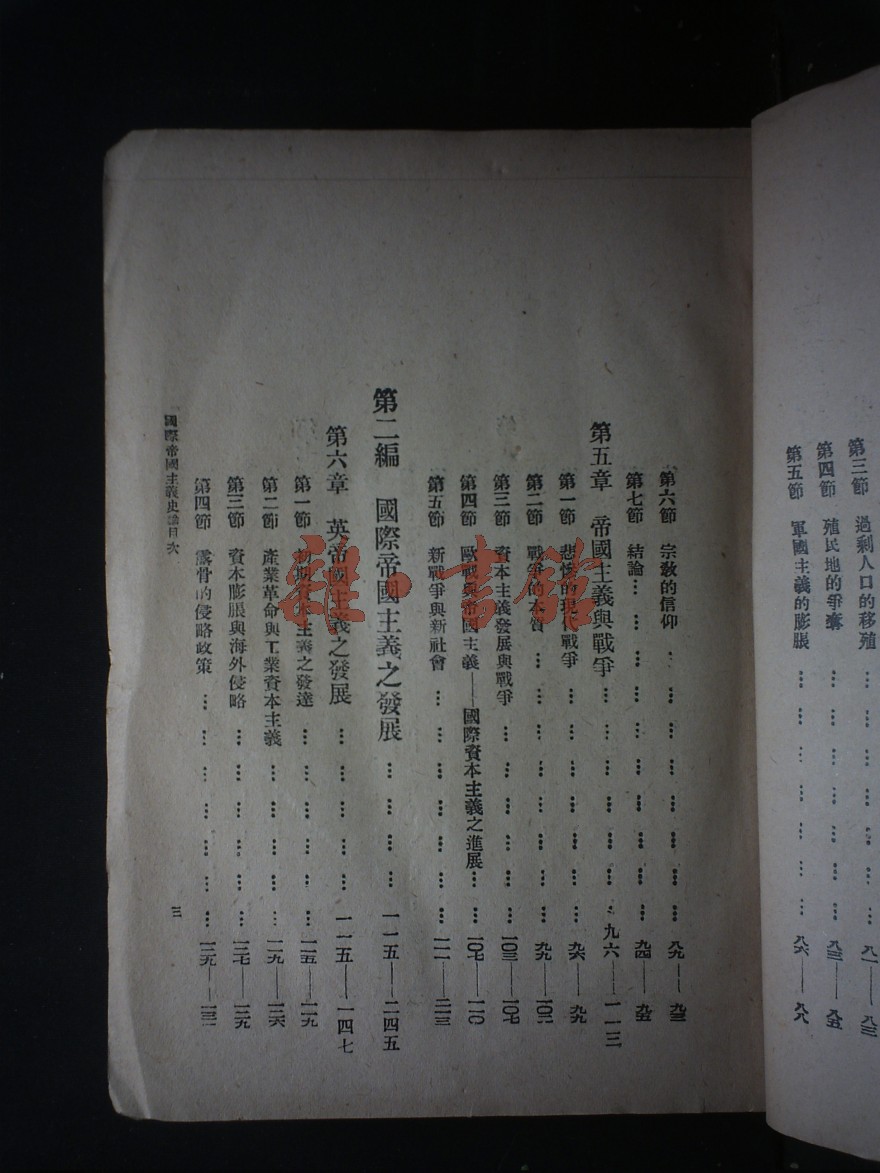 第三節 過剩人口的移殖 … … … … … … 八一——八三
第四節 殖民地的爭奪 … … … … … … 八三——八五
第五節 軍國主義的膨脹 … … … … … … 八六——八八
第六節 宗教的信仰 … … … … … … 八九——九三
第七節 結論 … … … … … … … 九四——九五
第五章 帝國主義與戰爭 … … … … … 九六——一一三
第一節 悲慘的現代戰爭 … … … … … 九六——九九
第二節 戰爭的本質 … … … … … … 九九——一〇二
第三節 資本主義發展與戰爭 … … … … … 一〇三——一〇七
第四節 歐戰與帝國主義——國際資本主義之進展 … … 一〇七——一一〇
第五節 新戰爭與新社會 … … … … … … 一一一——一一三
第二編 國際帝國主義之發展 … … … … 一一五——二四五
第六章 英帝國主義之發展 … … … … … 一一五——一四七
第一節 初期資本主義之發達 … … … … … … 一一五——一一九
第二節 產業革命與工業資本主義 … … … … … 一一九——一二六
第三節 資本膨脹與海外侵略 … … … … … … 一二七——一二九
第四節 露骨的侵略政策 … … … … … … 一二九——一三一
國際帝國主義史論目次
三
雜·書館